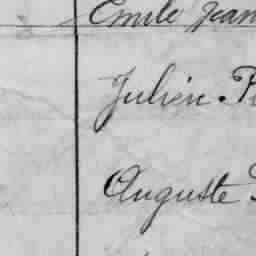 Emile Jean
Julien
Auguste